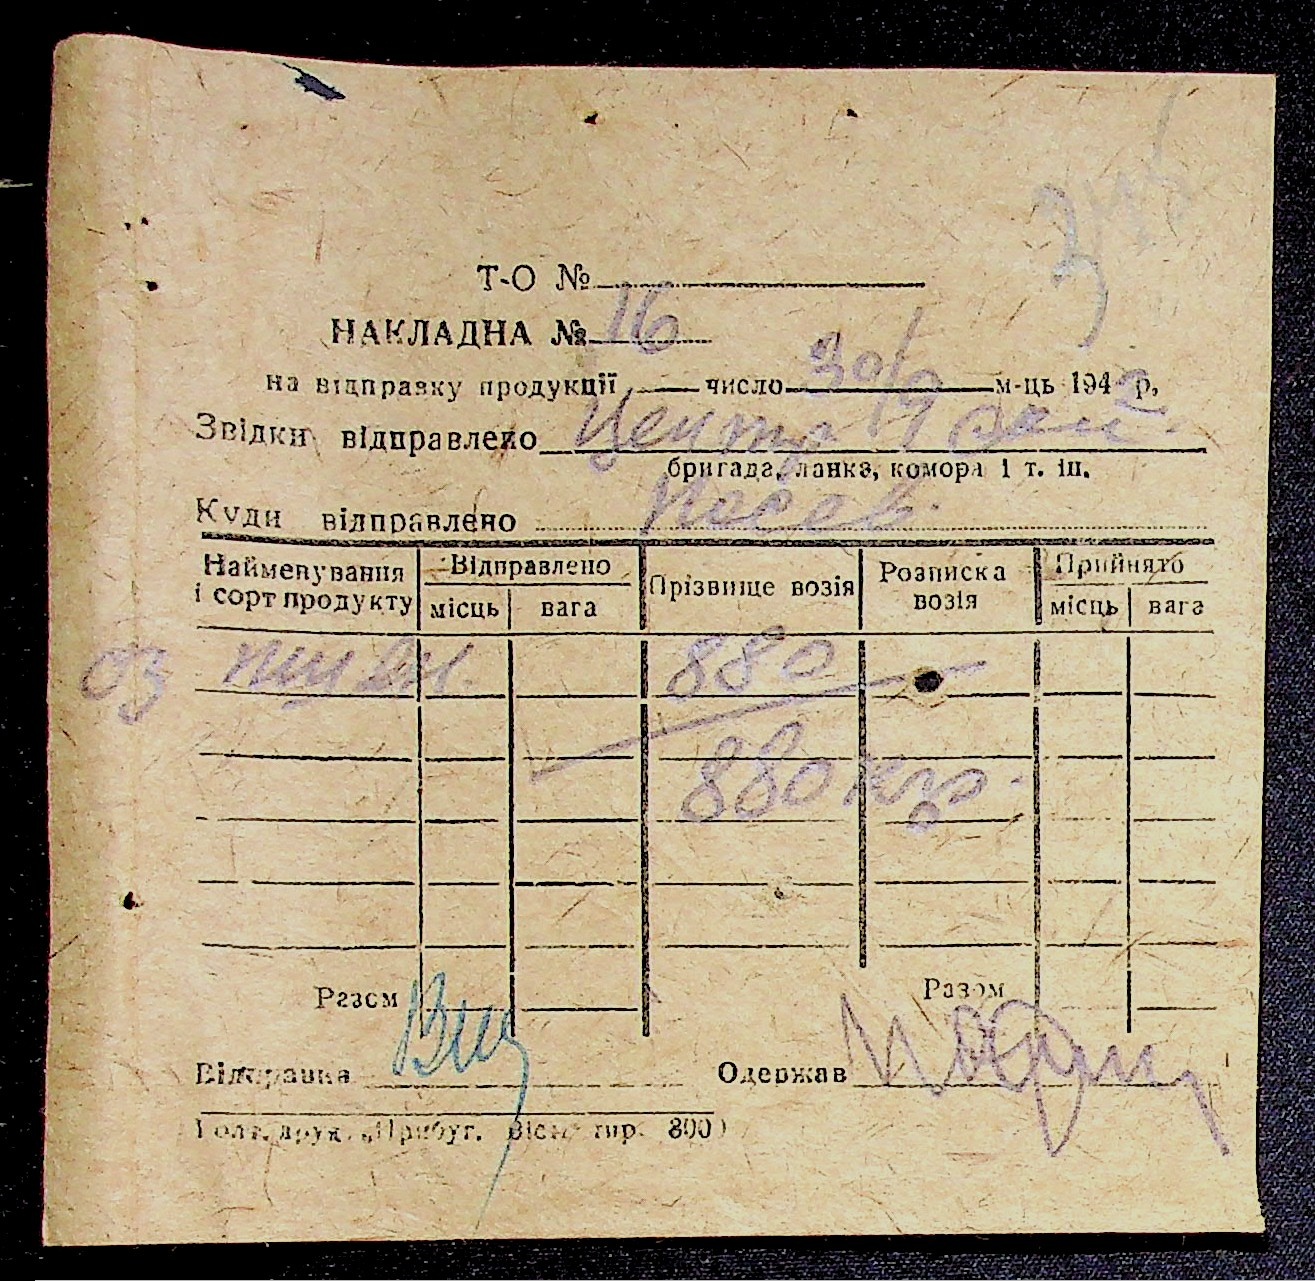 Т-О №
НАКЛАДНА № 16
на відправку продукції число 30/9 м-ць 1942 р,
Звідки відправлено Центр
бригада, ланка, комора і т. ін.
Куди відправлено Посев.
Найменування і сорт продукту Відправлено місць вага Прізвище возія Розписка возія Прийнято місць вага
оз пшен. 880
880 кгр.
Разом Разом
Відправив Одержав
Голт. друк. „Прибуг. Вісн. тир. 800